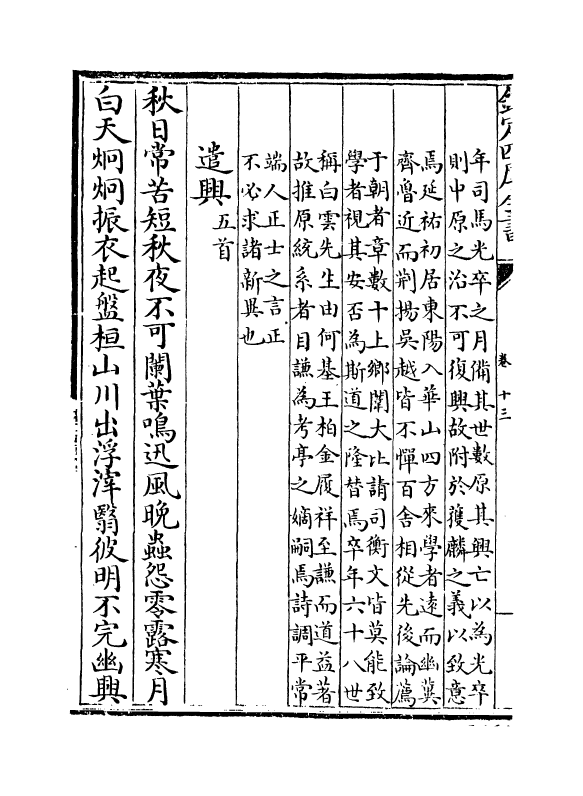 欽定四庫全書
卷十三
年司馬光卒之月備其世數原其興亡以為光卒
則中原之治不可復興故附於獲麟之義以致意
焉延祐初居東陽八華山四方來學者遠而幽冀
齊魯近而荆揚吳越皆不憚百舍相從先後論薦
于朝者章數十上鄉闈大比請司衡文皆莫能致
學者視其安否為斯道之隆替焉卒年六十八世
稱白雲先生由何基王柏金履祥至謙而道益著
故推原統系者目謙為考亭之嫡嗣焉詩調平常
端人正士之言正
不必求諸新異也
遣興五首
秋日常苦短秋夜不可闌葉鳴迅風晚蟲怨零露寒月
白天炯炯振衣起盤桓山川出浮滓翳彼明不完幽興